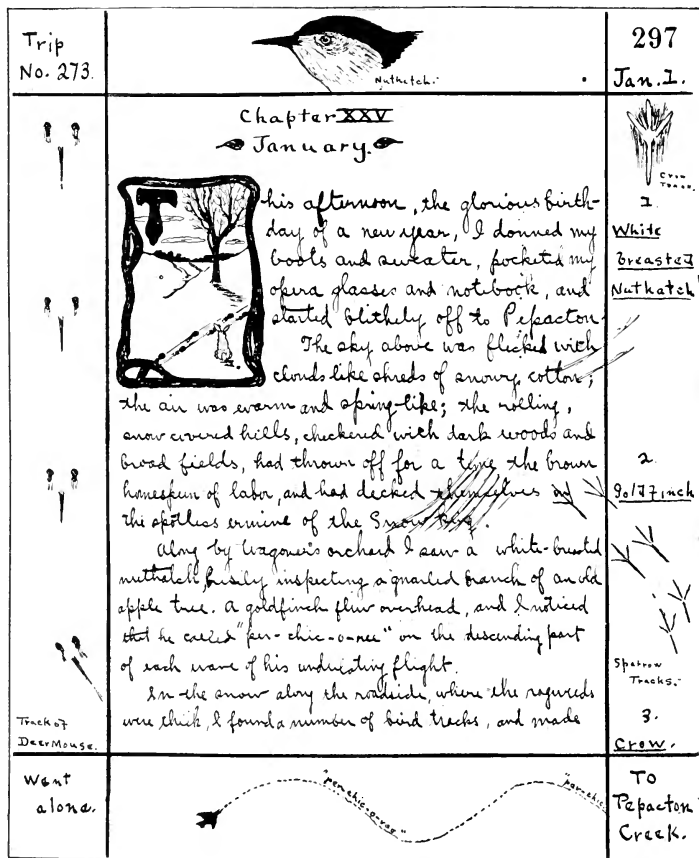 Trip
No. 273.
Nuthatch.
297
Jan. 1.
Chapter XXV
January.
This afternoon, the glorious birth-
day of a new year, I donned my
boots and sweater, pocketed my
opera glasses and notebook, and
started blithely off to Pepacton.
The sky above was flecked with
clouds like shreds of snowy cotton;
the air was warm and spring-like; the rolling,
snow covered hills, checkered with dark woods and
broad fields, had thrown off for a time the brown
homespun of labor, and had decked themselves in
the spotless ermine of the Snow King.
Along by Wagoner's orchard I saw a white-breasted
nuthatch, busily inspecting a gnarled branch of an old
apple tree. A goldfinch flew overhead, and I noticed
that he called "per-chic-o-ree" on the descending part
of each wave of his undulating flight.
In the snow along the roadside, where the ragweeds
were thick, I found a number of bird tracks, and made
Crow
Track.
1.
White
Breasted
Nuthatch
2.
Goldfinch
Sparrow
Tracks.
3.
Crow.
Track of
Deer Mouse.
Went
alone.
"per-chic-o-ree"
"per-chic
To
Pepacton
Creek.